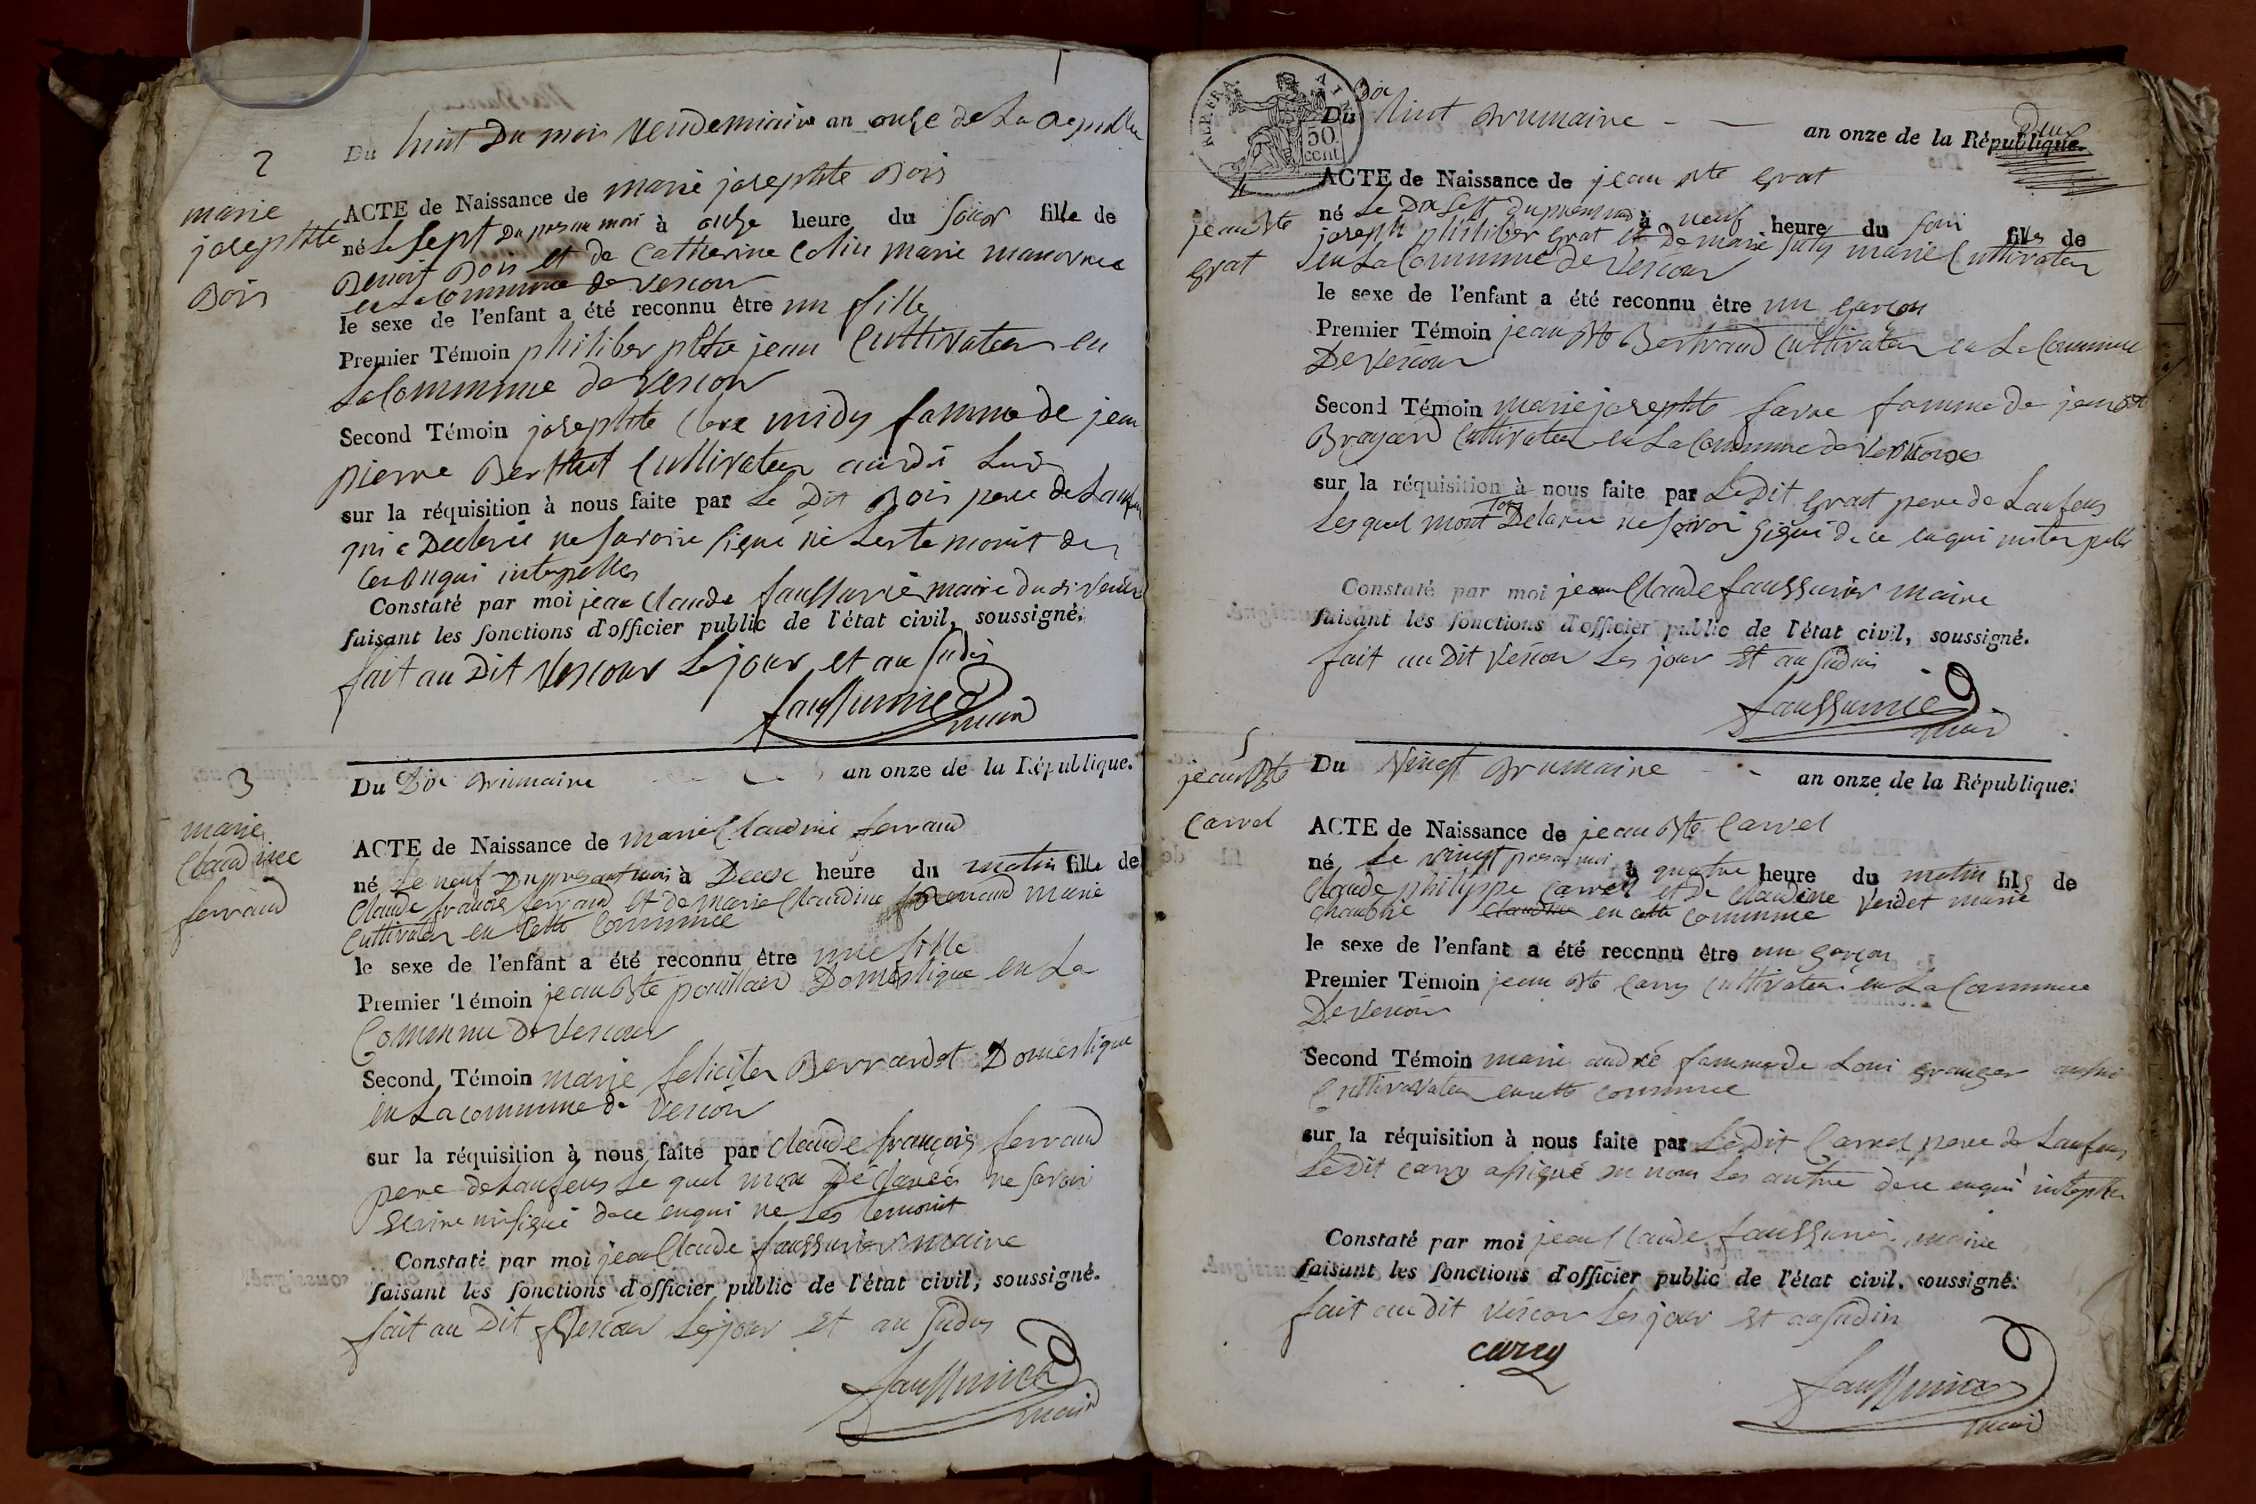 2
marie
josephte
Bois
Du huit Du mois vendemiaire an onze de La Republi
ACTE de Naissance de marie josephte Bois
né Le sept Du present moi à onze heure du soior fille de
Benoit Bois et de Catherine Colin marie manovrie
en La Commune de Vescour
le sexe de l'enfant a été reconnu être un fille
Premier Témoin philiber jean Cultivateur en
La Commune de Vescour
Second Témoin josephte midy famme de jean
pierre Berthet Cultivateur audi
sur la réquisition à nous faite par Le Dit Bois pere de Lanfan
qui a Declaré ne Savoire signé ni Les temoint de
ce enqui interpelles
Constaté par moi jean Claude faussurié maire du di
faisant les fonctions d'officier public de l'état civil, soussigné.
fait au Dit Vescour Le jour et an sudis
faussurier
maire
3
marie
Claudinee
ferraud
Du Dix Brumaire an onze de la République.
ACTE de Naissance de marie Claudine ferraud
né Le neuf Du present mois à Deux heure du matin fille de
Claude francois ferraud et De marie Claudine ferraud marie
Cultivateur en Cette Commune
le sexe de l'enfant a été reconnu être une fille
Premier Témoin jean Bte pouillard Domestique en La
Commune De Vescour
Second Témoin marie feliciter Berrardet Domestique
en La commune de Vescour
sur la réquisition à nous faite par Claude françois ferraud
pere de Lanfens Le quel mon Déclarées ne savoir
Ecrire ni signé de ce enqui ne Les temoint
Constaté par moi jean Claude faussurier maire
faisant les fonctions d'officier public de l'état civil, soussigné.
fait au Dit Vescour Le jour Et an sudis
faussurier
maire
REP. FRA.
50
cent
4
jean Bte
grat
Du Dix huit Brumaire an onze de la République.
ACTE de Naissance de jean Bte grat
né Le Dix Sept du present mois à neuf heure du soir fils de
joseph philiber grat et De marie marie Cultivateur
en La Commune de Vescour
le sexe de l'enfant a été reconnu être un garçon
Premier Témoin jean Bte Bertrand Cultivateur en La Commune
De Vescour
Second Témoin marie josephte favre famme de jean Bte
Brayard Cultivateur en La Commune de Vescour
sur la réquisition à nous faite par Le Dit grat pere de Lanfens
Les quel mont tous Delarer ne savoir signé de ce enqui interpelle
Constaté par moi jean Claude faussurier maire
faisant les fonctions d'officier public de l'état civil, soussigné.
fait au Dit Vescour Les jour Et an sudis
faussurier
maire
5
jean Bte
Carrel
Du Vingt Brumaire an onze de la République.
ACTE de Naissance de jean Bte Carrel
né Le vingt present moi à quatre heure du matin fils de
Claude philippe Carrel et de Claudine Verdet marie
en cette commune
le sexe de l'enfant a été reconnu être un garçon
Premier Témoin jean Bte Carry Cultivateur en La Commune
De Vescour
Second Témoin marie andré famme de Loui granger aussi
Cultivateur en cette commune
sur la réquisition à nous faite par Le Dit Carrel pere de Lanfens
Le Dit carry a signé non Les autre de ce enqui
Constaté par moi jean Claude faussurier maire
faisant les fonctions d'officier public de l'état civil, soussigné.
fait au dit Vescour Les jour Et an sudis
carry
faussurier
maire